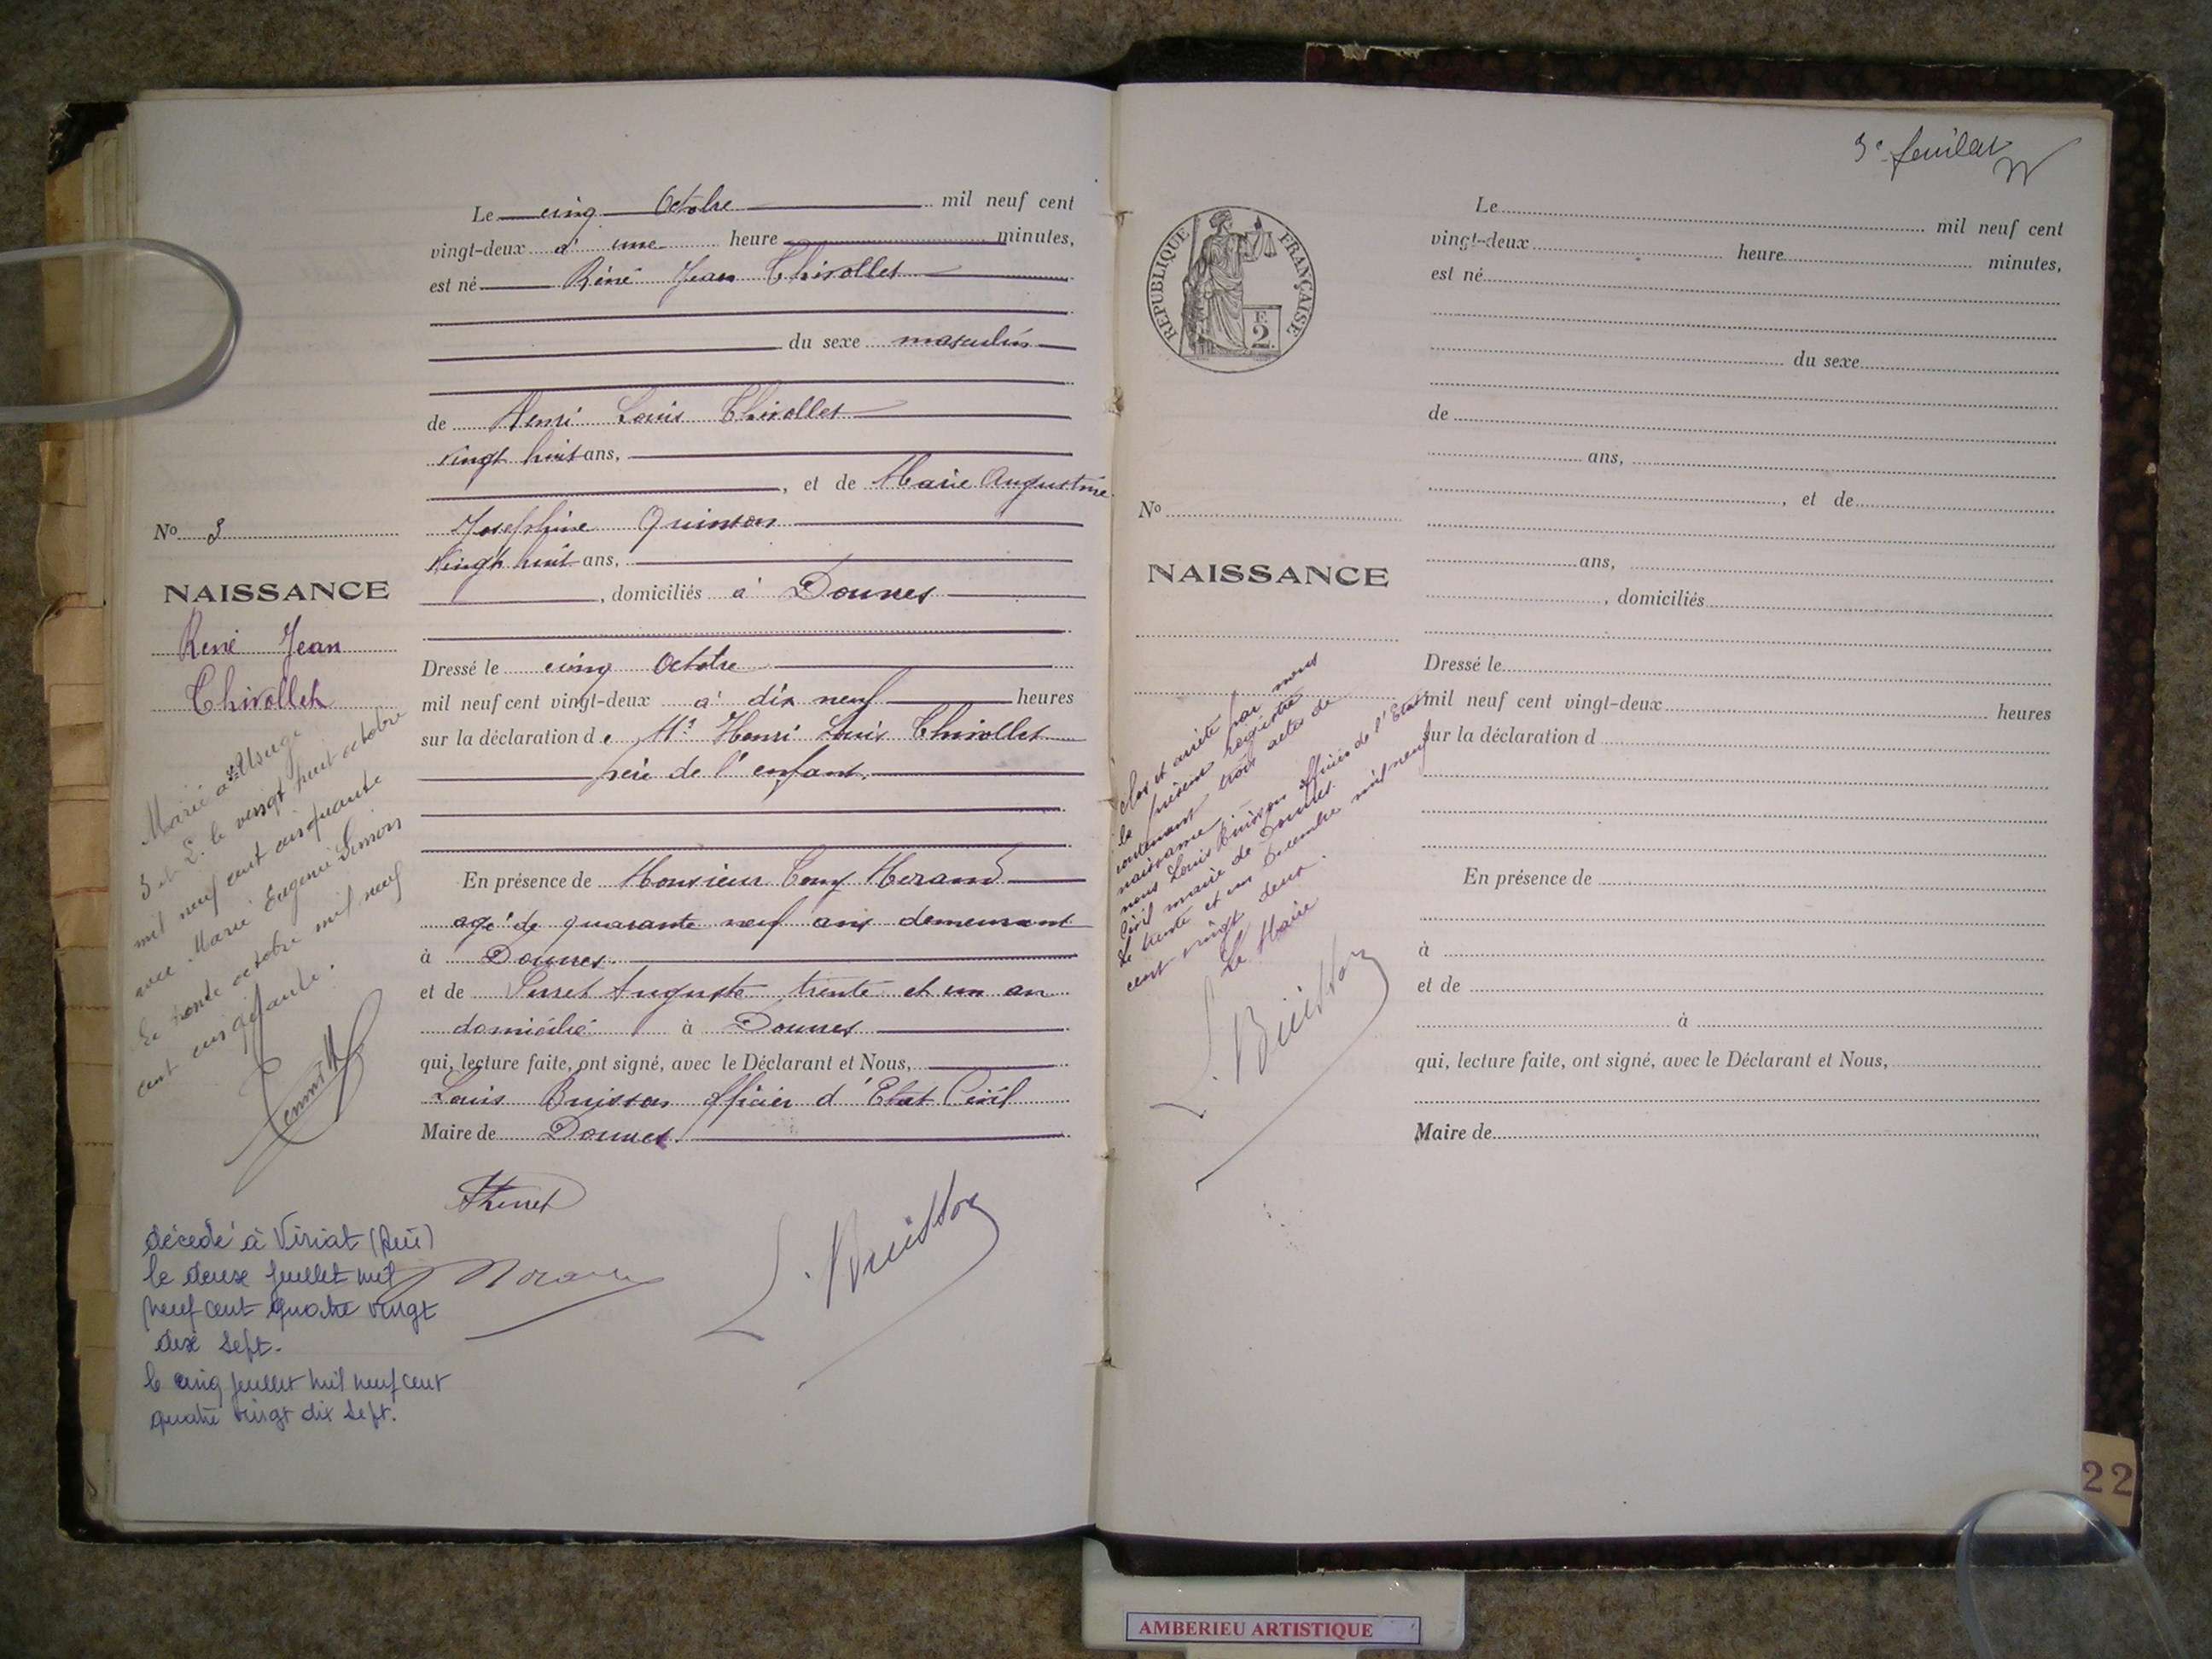 Le cinq Octobre mil neuf cent
vingt-deux à une heure minutes,
est né Réné Jean Chirollet
du sexe masculin
de Henri Louis Chirollet
vingt huit ans,
, et de Marie Augustine
Joséphine Quinson
vingt huit ans,
, domiciliés à Douvres
Dressé le cinq Octobre
mil neuf cent vingt-deux à dix neuf heures
sur la déclaration de Mr Henri Louis Chirollet
père de l'enfant.
En présence de Monsieur
agé de quarante neuf ans demeurant
à Douvres
et de Auguste trente et un an
domicilié à Douvres
qui, lecture faite, ont signé, avec le Déclarant et Nous,
Louis Buisson officier d'Etat Civil
Maire de Douvres.
L. Buisson
No 3
NAISSANCE
René Jean
Chirollet
Marié à
le vingt huit octobre
mil neuf cent cinquante
avec Marie Eugénie
Le octobre mil neuf
cent cinquante.
décédé à Viriat (Ain)
le deux juillet mil
neuf cent quatre vingt
dix sept.
le cinq juillet mil neuf cent
quatre vingt dix sept.
3e feuillet
REPUBLIQUE FRANÇAISE
2
F.
Le mil neuf cent
vingt-deux heure minutes,
est né
du sexe
de
ans,
, et de
ans,
, domiciliés
Dressé le
mil neuf cent vingt-deux heures
sur la déclaration d
En présence de
à
et de
à
qui, lecture faite, ont signé, avec le Déclarant et Nous,
Maire de
No
NAISSANCE
Clos et arrêté par nous
le présent registre
contenant trois actes de
naissance
nous Louis Buisson officier de l'Etat
Civil maire de Douvres.
Le trente et un Décembre mil neuf
cent vingt deux.
Le Maire
L. Buisson
22
AMBERIEU ARTISTIQUE